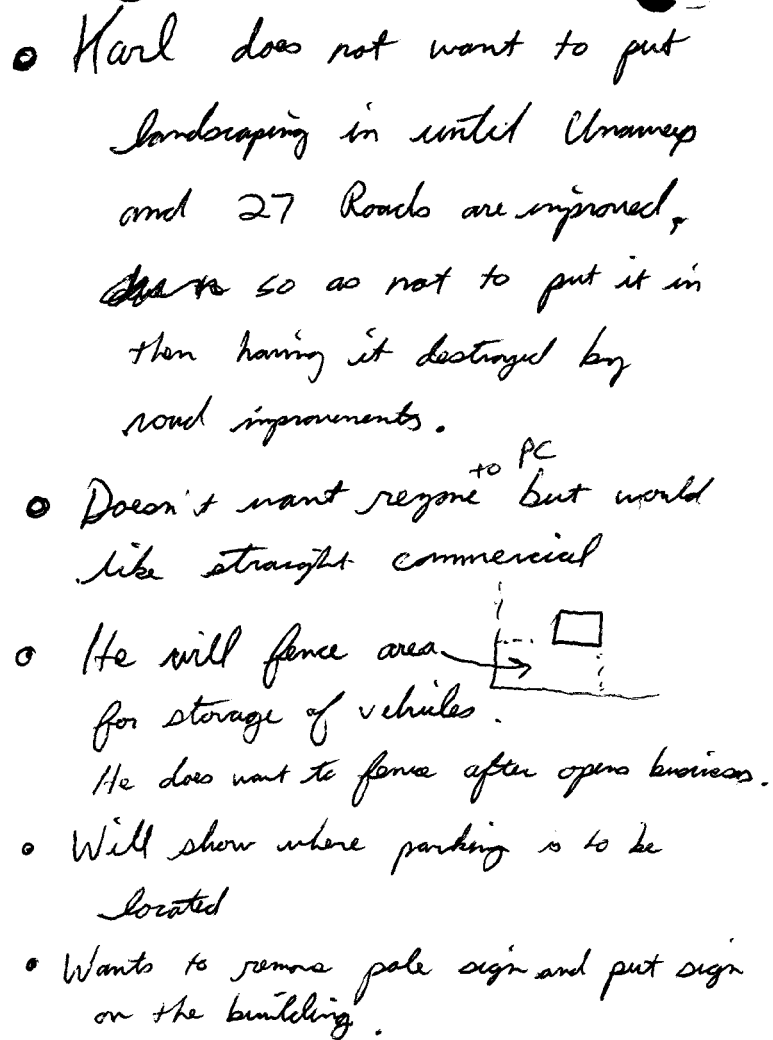 • Karl does not want to put
landscaping in until Unaweep
and 27 Roads are improved,
so as not to put it in
then having it destroyed by
road improvements.
• Doesn't want rezone to PC but would
like straight commercial
• He will fence area
for storage of vehicles.
He does want to fence after opens business.
• Will show where parking is to be
located
• Wants to remove pole sign and put sign
on the building.